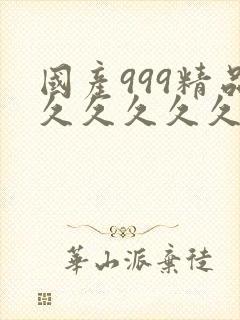 國產999精品
久久久久久
華山派棄徒